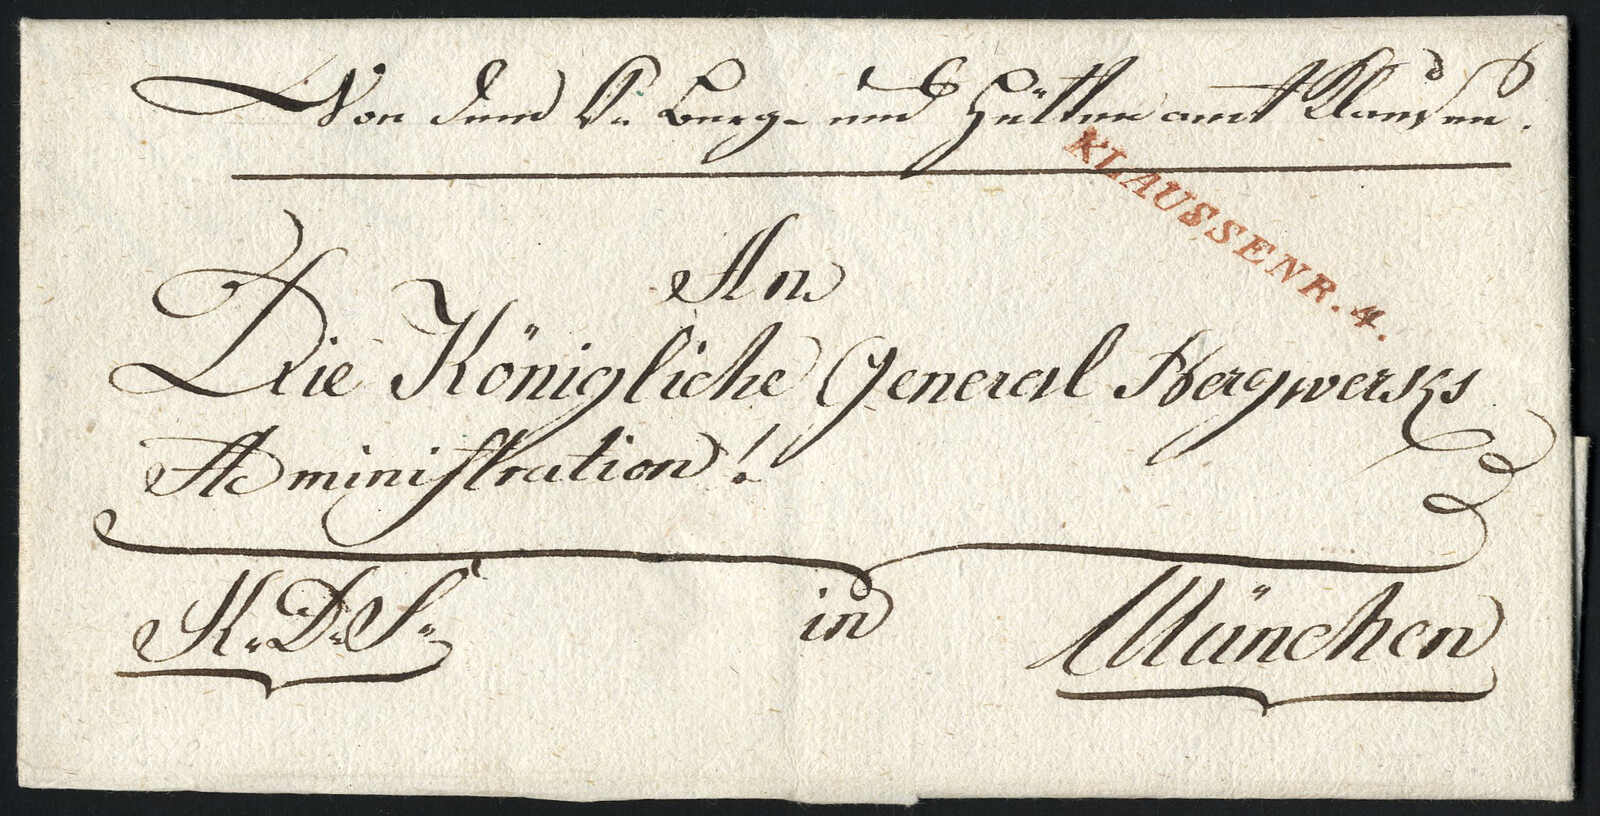 Von dem K. Berg- und Hüttenamt Klausen.
KLAUSSENR.4.
An
Die Königliche General Bergwerks
Administration!
K. D. S. in München